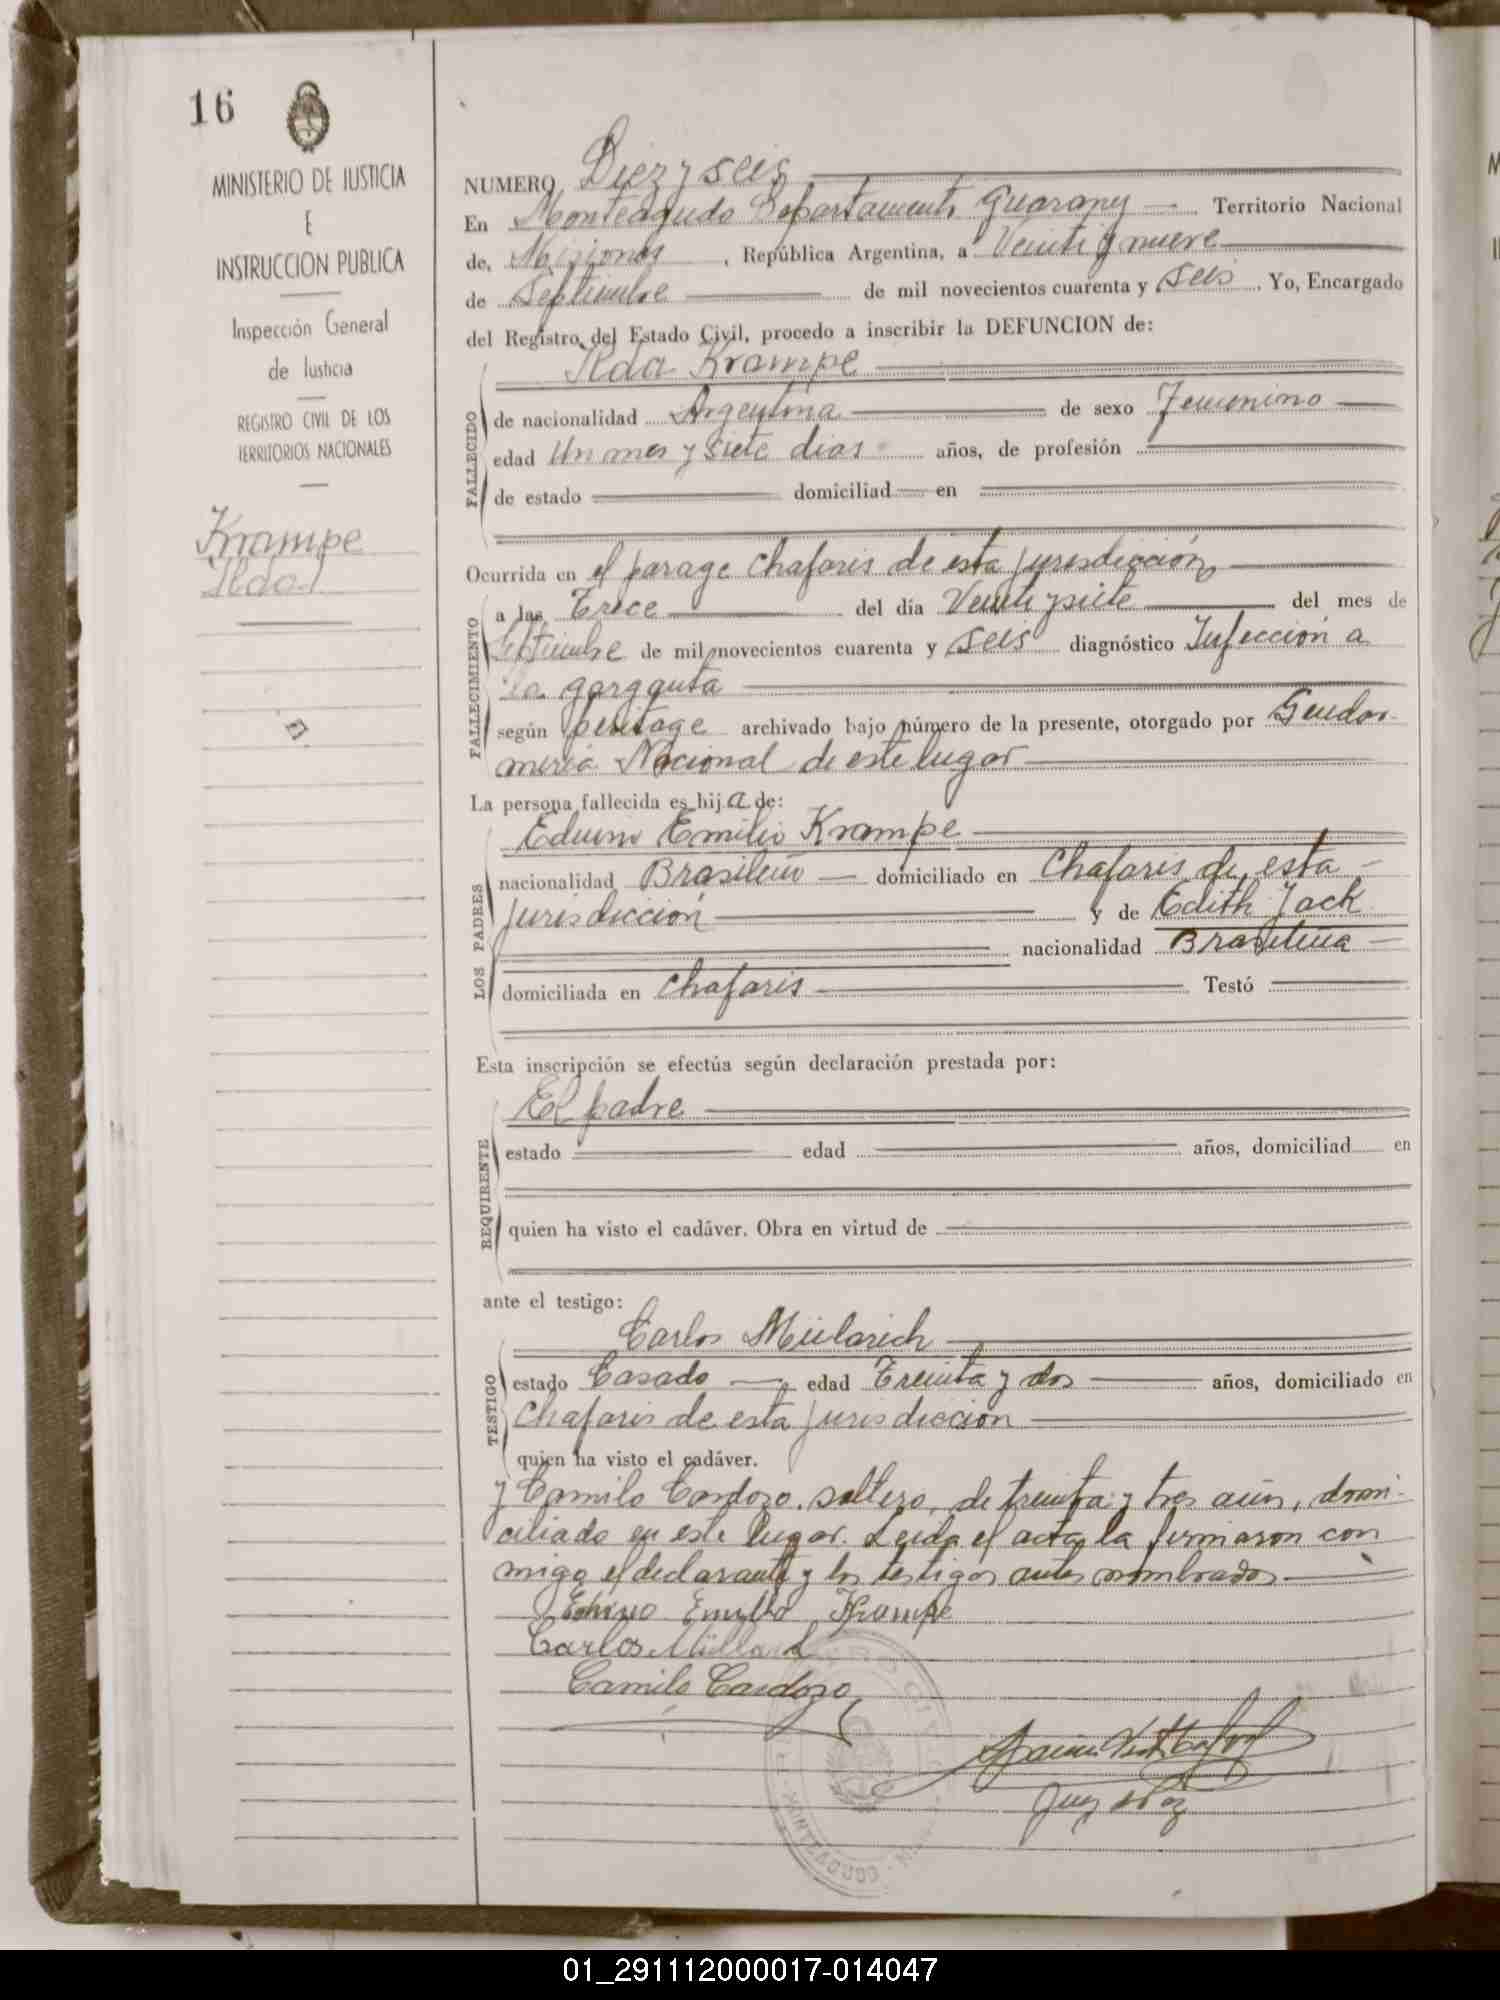 16
MINISTERIO DE JUSTICIA
E
INSTRUCCION PUBLICA
Inspección General
de Justicia
REGISTRO CIVIL DE LOS
TERRITORIOS NACIONALES
Krampe
Ilda
NUMERO Diez y seis
En Monteagudo Departamento Guarany Territorio Nacional
de, Misiones , República Argentina, a Veinti y nueve
de Septiembre de mil novecientos cuarenta y seis . Yo, Encargado
del Registro del Estado Civil, procedo a inscribir la DEFUNCION de:
Ilda Krampe
FALLECIDO
de nacionalidad Argentina de sexo Femenino
edad Un mes y siete dias años, de profesión
de estado domiciliad en
Ocurrida en el parage Chafaris de esta jurisdicción
FALLECIMIENTO
a las Trece del día Veinti y siete del mes de
Septiembre de mil novecientos cuarenta y seis diagnóstico Infección a
la garganta
según peritage archivado bajo número de la presente, otorgado por Gendar-
mería Nacional de este lugar
La persona fallecida es hija de:
LOS PADRES
Eduino Emilio Krampe
nacionalidad Brasileño domiciliado en Chafaris de esta
jurisdicción y de Edith Jack
nacionalidad Brasileña
domiciliada en Chafaris Testó
Esta inscripción se efectúa según declaración prestada por:
REQUIRENTE
El padre
estado edad años, domiciliad en
quien ha visto el cadáver. Obra en virtud de
ante el testigo:
TESTIGO
Carlos
estado Casado edad Treinta y dos años, domiciliado en
Chafaris de esta jurisdiccion
quien ha visto el cadáver.
y Camilo Cardozo, soltero, de treinta y tres años, domi-
ciliado en este lugar. Leida el acta la firmaron con
migo el declarante y los testigos antes nombrados
Emilio Krampe
Carlos
Camilo Cardozo
Juez de Paz
MONTEAGUDO
01_291112000017-014047